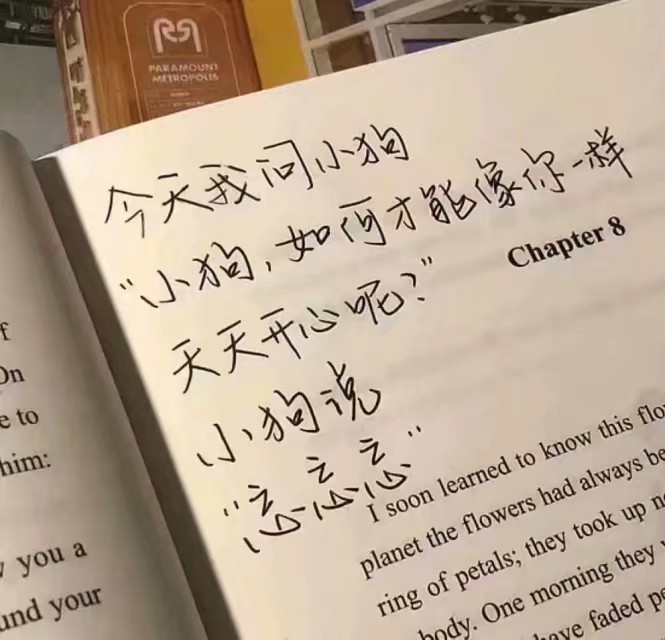 PARAMOUNT
METROPOLIS
今天我问小狗
"小狗,如何才能像你一样
天天开心呢?"
小狗说
"忘忘忘"
Chapter 8
I soon learned to know this flo
planet the flowers had always be
ring of petals; they took up n
body. One morning they
have faded pe
f
On
e to
him:
you a
und your